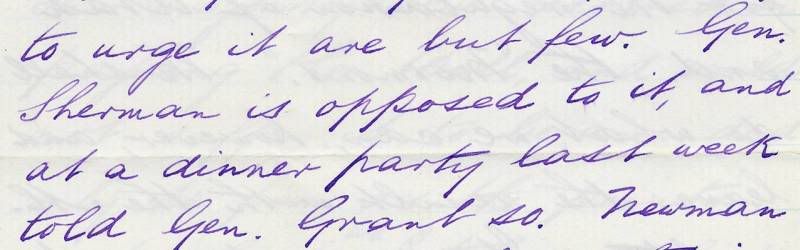 to urge it are but few. Gen.
Sherman is opposed to it, and
at a dinner party last week
told Gen. Grant so. Newman